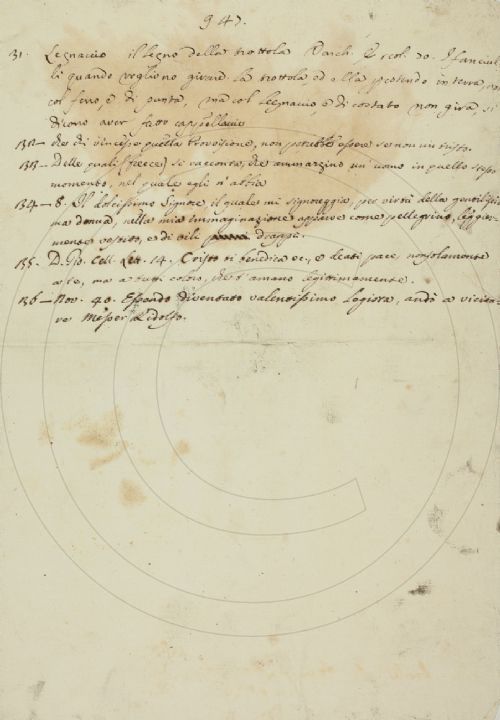 947.
31. Legnaccio il legno della trottola Varch. Ercol. 70. I fanciul-
li quando vogliono girare la trottola, ed ella percotendo in terra, non
col ferro, e di punta, ma col legnaccio, e di costato non gira, si
dicono aver fatto cappellaccio
132 — di questa
133 — Delle quali (frecce) si racconta, che ammazzino un uomo in quello stesso
momento, nel quale egli n'abbia
134 — 8. Il dolcissimo Signore, il quale mi signoreggia, per virtù della gentilissi-
ma donna, nella mia immaginazione apparve come pellegrino, leggier-
mente vestito, e di vili drappi.
135. D. Gio. Cell. Lett. 14. Cristo ti benedica ec., e deati pace, nonsolamente
a te, ma a tutti coloro, che t'amano legittimamente.
136 — Nov. 40. Essendo diventato valentissimo legista, andò a vicita-
re Messer Ridolfo.